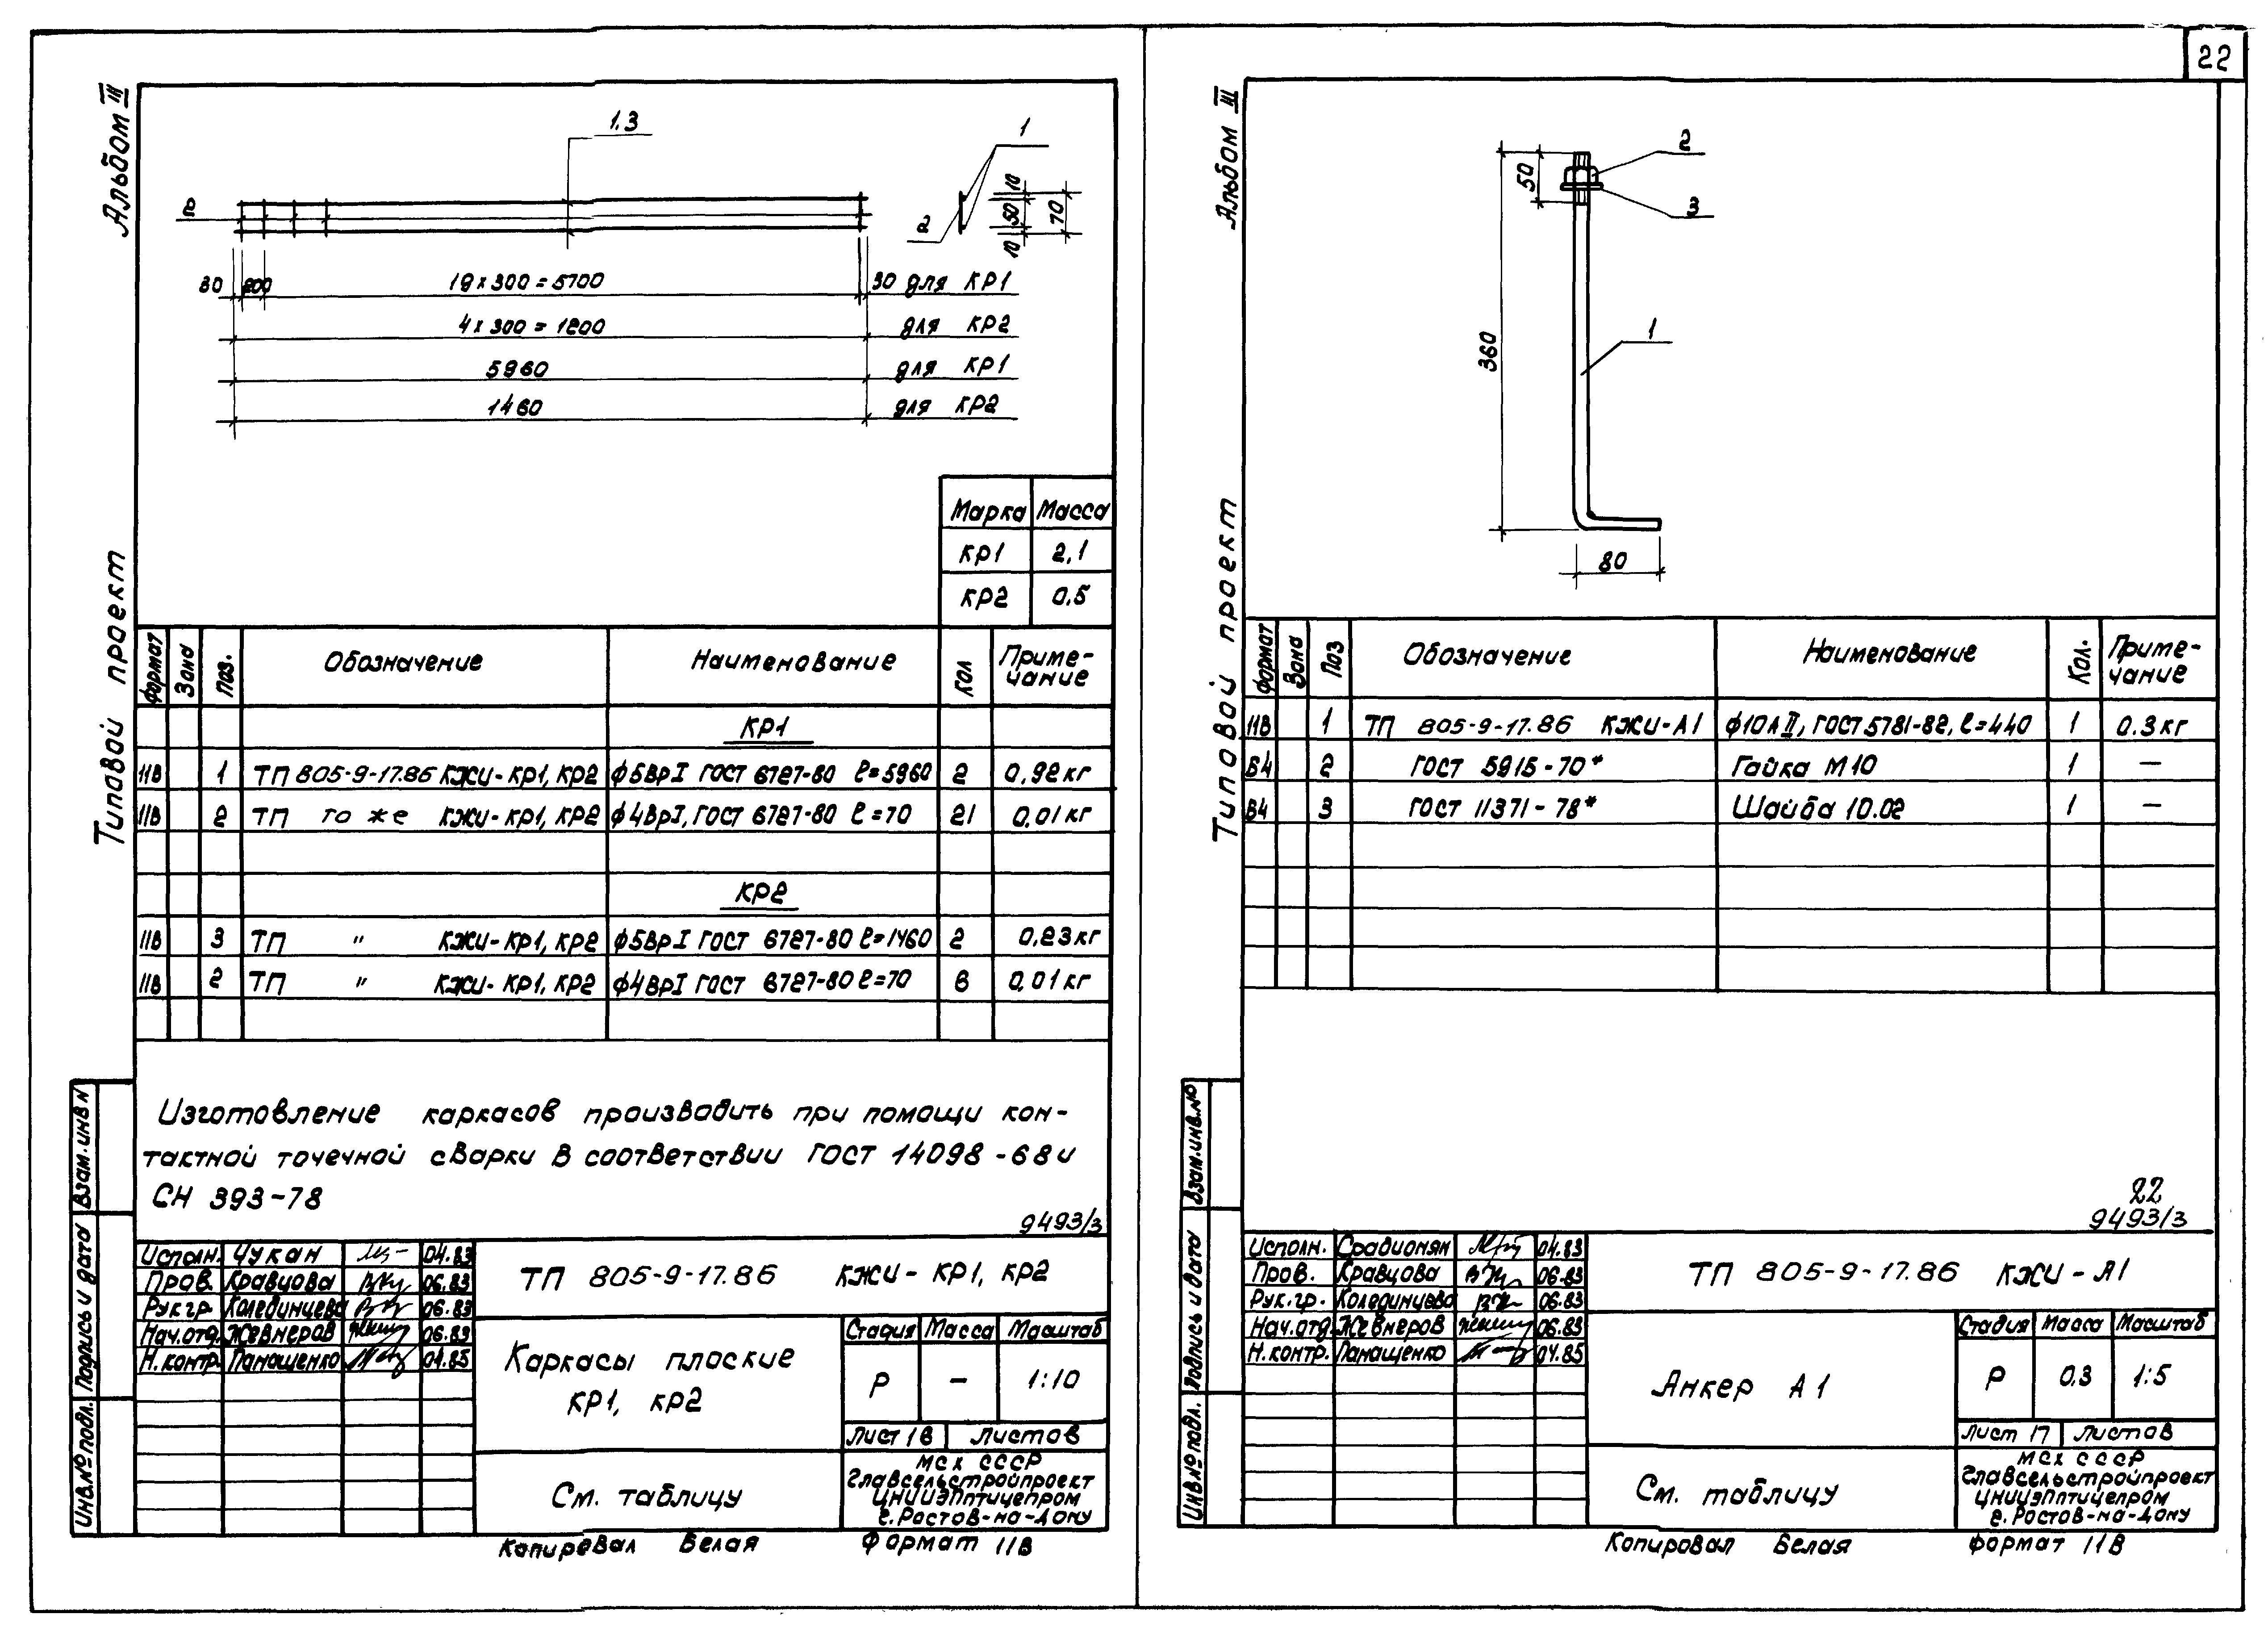 22
Альбом III
Типовой проект
1.3
1
2
2
10
50
10
70
30
200
19 х 300 = 5700
30 для КР1
4 х 300 = 1200
для КР2
5960
для КР1
1460
для КР2
Марка Масса
КР1 2,1
КР2 0,5
Формат Зона Поз. Обозначение Наименование Кол Примечание
КР1
11В 1 ТП 805-9-17.86 КЖИ-КР1, КР2 ϕ5ВрI ГОСТ 6727-80 ℓ=5960 2 0,92 кг
11В 2 ТП то же КЖИ-КР1, КР2 ϕ4ВрI, ГОСТ 6727-80 ℓ=70 21 0,01 кг
КР2
11В 3 ТП " КЖИ-КР1, КР2 ϕ5ВрI ГОСТ 6727-80 ℓ=1460 2 0,23 кг
11В 2 ТП " КЖИ-КР1, КР2 ϕ4ВрI ГОСТ 6727-80 ℓ=70 6 0,01 кг
Изготовление каркасов производить при помощи кон-
тактной точечной сварки в соответствии ГОСТ 14098-68 и
СН 393-78
9493/3
Взам. инв N
Подпись и дата
Инв. № подл.
Исполн. Чукан 04.83
Пров. Кравцова 06.83
Рук. гр. Колединцева 06.83
Нач. отд. Жевнеров 06.83
Н. контр. Панащенко 04.85
ТП 805-9-17.86 КЖИ-КР1, КР2
Каркасы плоские
КР1, КР2
Стадия Масса Масштаб
Р – 1:10
Лист 16 Листов
См. таблицу
МСх СССР
Главсельстройпроект
ЦНИИЭПптицепром
г. Ростов-на-Дону
Копировал Белая Формат 11В
Альбом III
Типовой проект
50
360
80
2
3
1
Формат Зона Поз Обозначение Наименование Кол. Приме-
чание
11В 1 ТП 805-9-17.86 КЖИ-А1 ϕ10АII, ГОСТ 5781-82, ℓ=440 1 0.3 кг
Б4 2 ГОСТ 5915-70* Гайка М10 1 –
Б4 3 ГОСТ 11371-78* Шайба 10.02 1 –
22
9493/3
Взам. инв. №
Подпись и дата
Инв. № подл.
Исполн. Срабионян 04.83
Пров. Кравцова 06.83
Рук. гр. Колединцева 06.83
Нач. отд. Жевнеров 06.83
Н. контр. Панащенко 04.85
ТП 805-9-17.86 КЖИ-А1
Анкер А1
Стадия Масса Масштаб
Р 0,3 1:5
Лист 17 Листов
См. таблицу
МСх СССР
Главсельстройпроект
ЦНИИЭПптицепром
г. Ростов-на-Дону
Копировал Белая Формат 11В